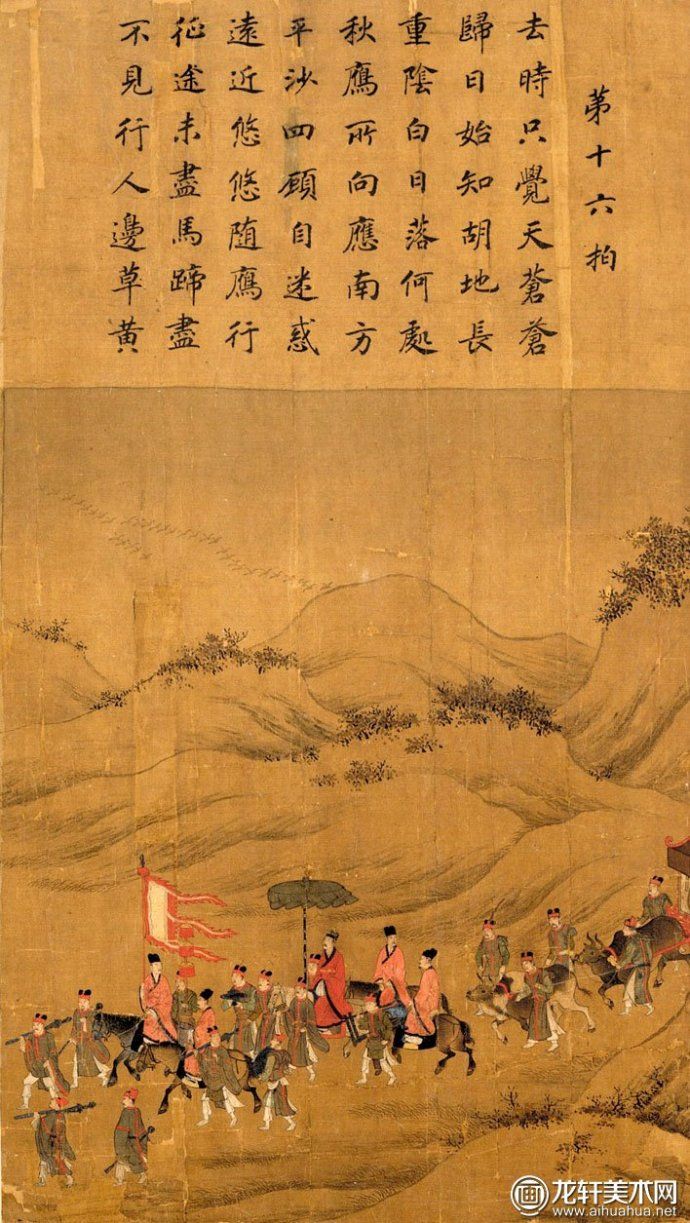 第十六拍
去時只覺天蒼蒼
歸日始知胡地長
重陰白日落何處
秋鴈所向應南方
平沙四顧自迷惑
遠近悠悠随鴈行
征途未盡馬蹄盡
不見行人邊草黄
画 龙轩美术网
www.aihuahua.net